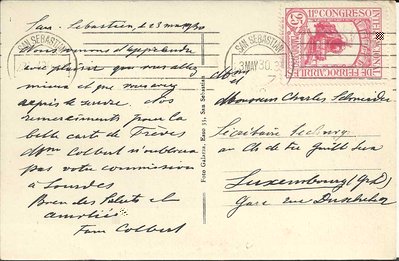 San Sebastien, le 23 mai 30
Nous venons d'apprendre
avec plaisir que vous allez
mieux et que
après le Nos
remerciements pour la
belle carte de Trèves
Mme Colbert n'oubliera
pas votre commission
à Lourdes
Bien des Saluts et
amitiés
Fam Colbert
Foto Galarza, Enso 35, San Sebastian
SAN SEBASTIAN
SAN SEBASTIAN
3 MAY 30
11º CONGRESO
DE FERROCARRILES
25
Monsieur Charles Schneider
Secrétaire
au Ch. de fer Guill. Lux
Luxembourg (Gd)
Gare rue